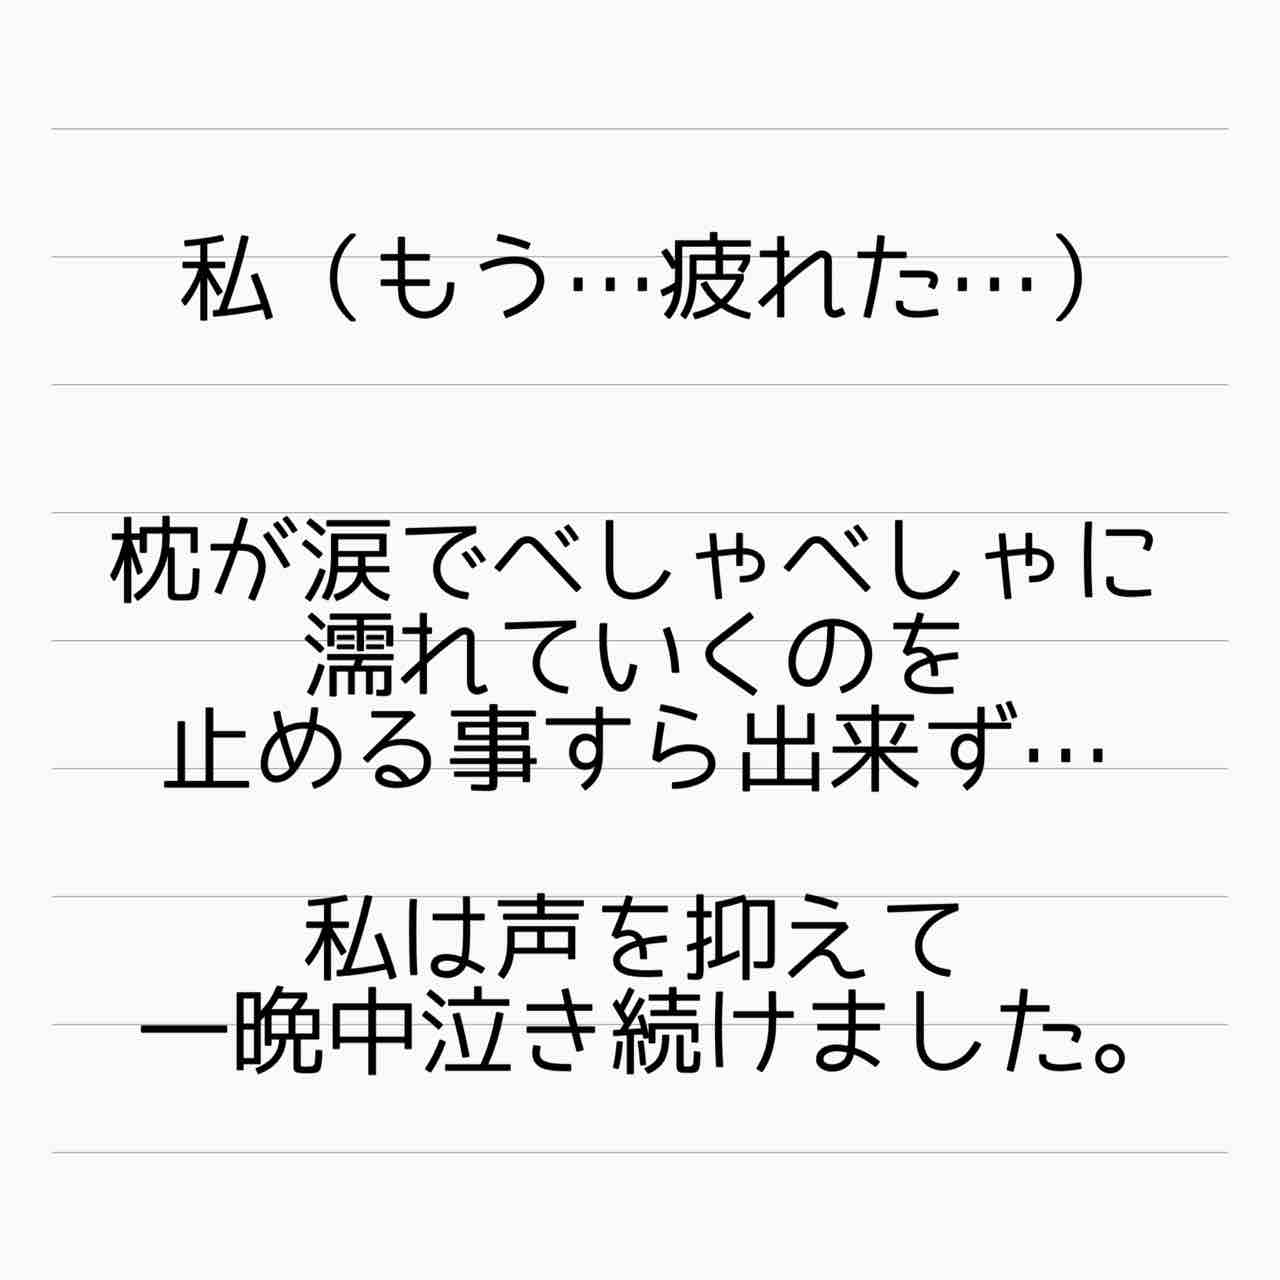 私（もう…疲れた…）
枕が涙でべしゃべしゃに
濡れていくのを
止める事すら出来ず…
私は声を抑えて
一晩中泣き続けました。